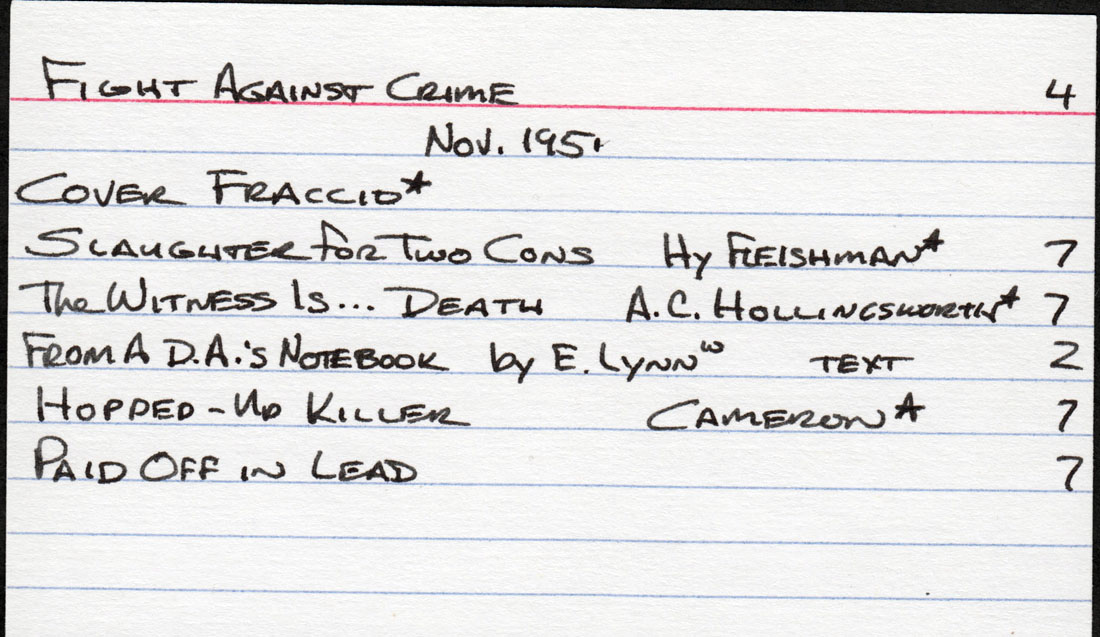 FIGHT AGAINST CRIME 4
NOV. 1951
COVER FRACCIO*
SLAUGHTER FOR TWO CONS Hy FLEISHMAN* 7
The WITNESS IS... DEATH A.C. HOLLINGSWORTH* 7
FROM A D.A.'S NOTEBOOK by E. LYNN w TEXT 2
HOPPED-UP KILLER CAMERON* 7
PAID OFF IN LEAD 7